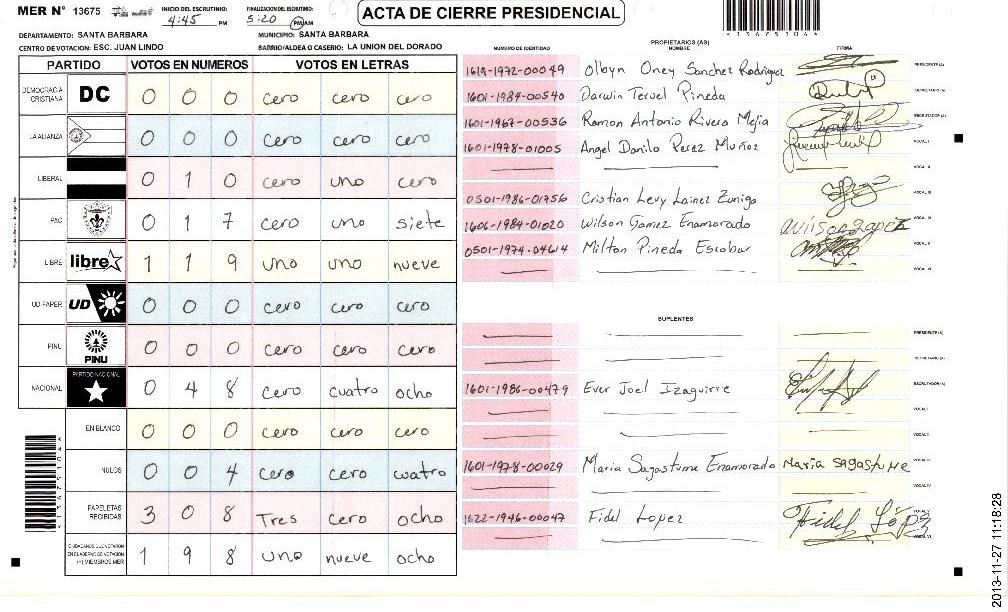 MER N° 13675
INICIO DEL ESCRUTINIO: 4:45 PM
FINALIZACION DEL ESCRUTINIO: 5:20 PM/AM
ACTA DE CIERRE PRESIDENCIAL
DEPARTAMENTO: SANTA BARBARA
MUNICIPIO: SANTA BARBARA
CENTRO DE VOTACION: ESC. JUAN LINDO
BARRIO/ALDEA O CASERIO: LA UNION DEL DORADO
PARTIDO VOTOS EN NUMEROS VOTOS EN LETRAS
DEMOCRACIA CRISTIANA DC 0 0 0 cero cero cero
LA ALIANZA 0 0 0 cero cero cero
LIBERAL 0 1 0 cero uno cero
PAC 0 1 7 cero uno siete
LIBRE libre 1 1 9 uno uno nueve
UD-FAPER UD 0 0 0 cero cero cero
PINU PINU 0 0 0 cero cero cero
NACIONAL PARTIDO NACIONAL 0 4 8 cero cuatro ocho
EN BLANCO 0 0 0 cero cero cero
NULOS 0 0 4 cero cero cuatro
PAPELETAS RECIBIDAS 3 0 8 Tres cero ocho
CIUDADANOS QUE VOTARON EN CUADERNO DE VOTACION (+) MIEMBROS MER 1 9 8 uno nueve ocho
NUMERO DE IDENTIDAD PROPIETARIOS (AS) NOMBRE FIRMA
1619-1972-00049 Olbyn Oney Sanchez Rodriguez PRESIDENTE(A)
1601-1984-00540 Darwin Teruel Pineda SECRETARIO(A)
1601-1967-00536 Ramon Antonio Rivera Mejia ESCRUTADOR(A)
1601-1978-01005 Angel Danilo Perez Muñoz VOCAL I
VOCAL II
0501-1986-01756 Cristian Levy Lainez Zuniga VOCAL III
1606-1984-01020 Wilson Gamez Enamorado VOCAL IV
0501-1974-04614 Milton Pineda Escobar VOCAL V
VOCAL VI
SUPLENTES
PRESIDENTE(A)
SECRETARIO(A)
1601-1986-00479 Ever Joel Izaguirre ESCRUTADOR(A)
VOCAL I
VOCAL II
1601-1978-00029 Maria Sagastume Enamorado Maria Sagastume VOCAL III
VOCAL IV
1622-1946-00047 Fidel Lopez Fidel López VOCAL V
VOCAL VI
2013-11-27 11:18:28